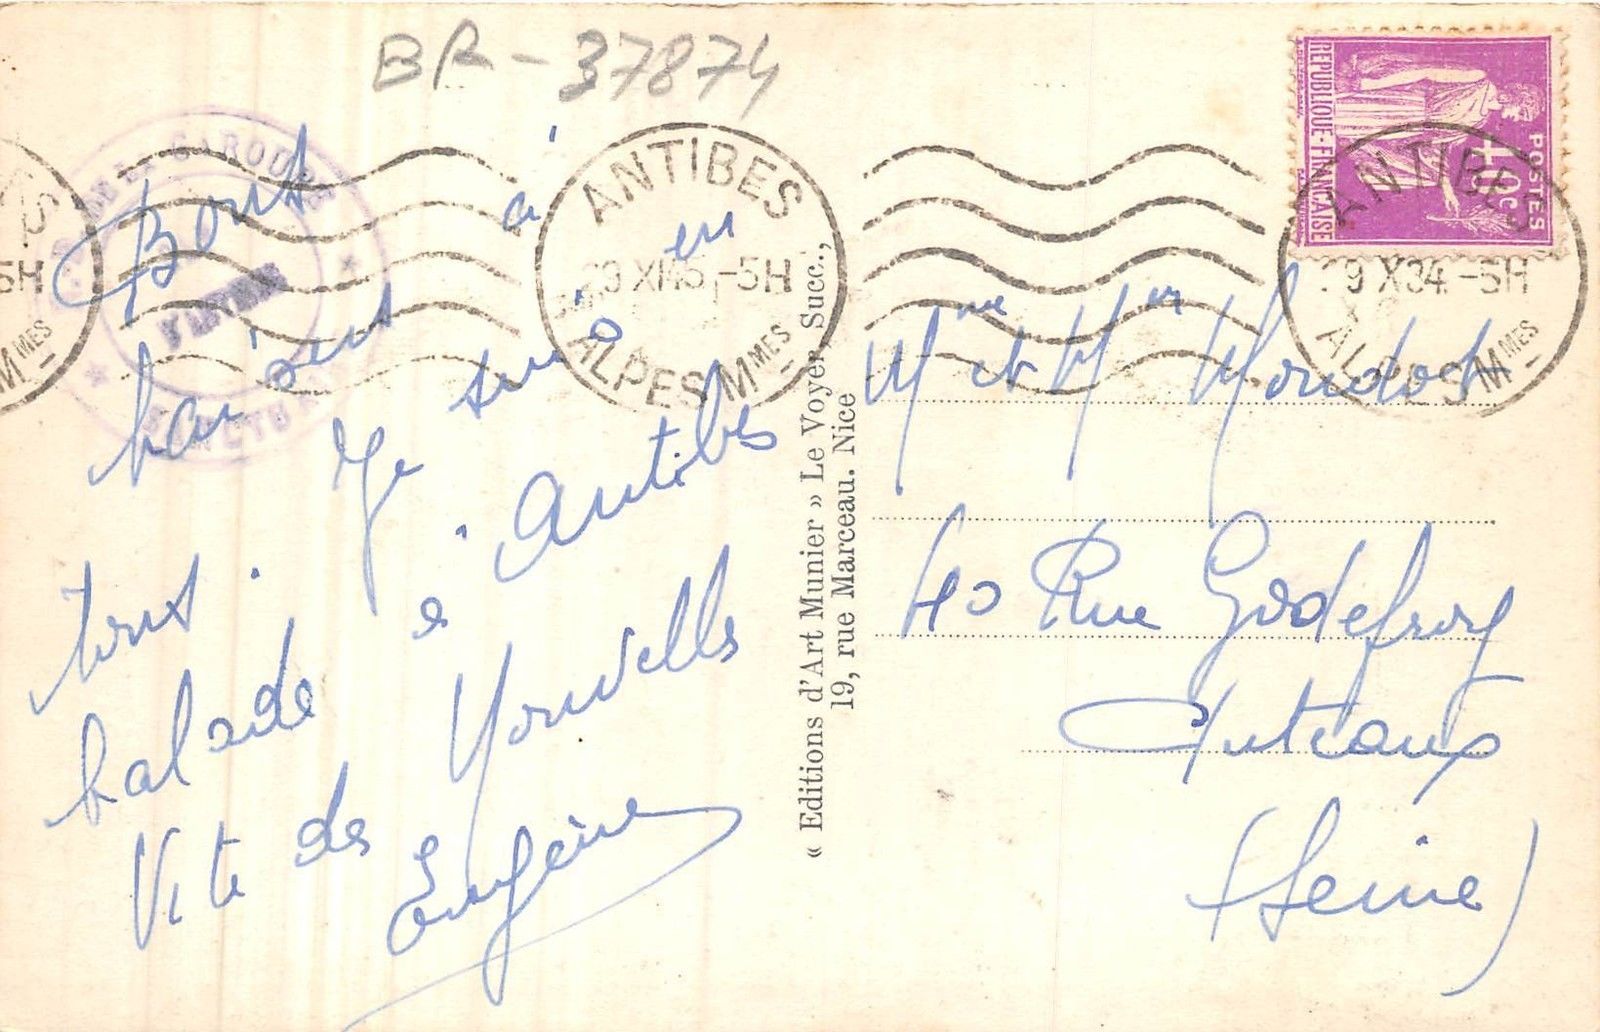 BR-37874
ANTIBES
29 XI 34 -5H
ALPES Mmes
ANTIBES
ALPES Mmes
5H
Mmes
LA GAROUPE
D'ANTIBES
POSTES
40c
REPUBLIQUE-FRANÇAISE
Bons
baisers à
tous. Je suis en
balade à Antibes
Vite des Nouvelles
Eugène
« Editions d'Art Munier » Le Voyer, Succ.,
19, rue Marceau. Nice
Mme et Mr
40 Rue Godefroy
Puteaux
(Seine)